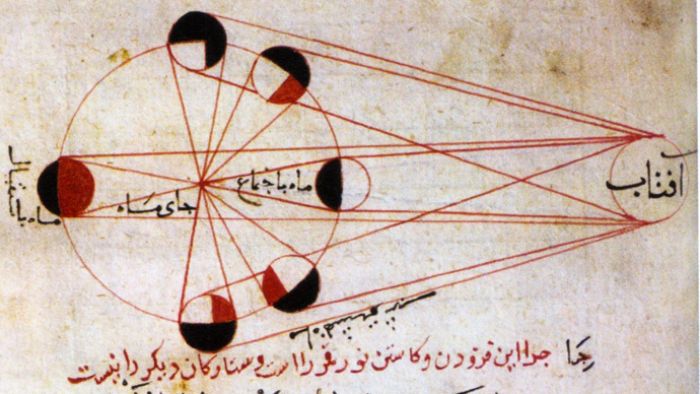 افتاب
ماه باجتماع
جای مَاه
ماه باستقبال
جرا این فزودن و کاستن نور قمر را است و ستارکان دیکر را نیست